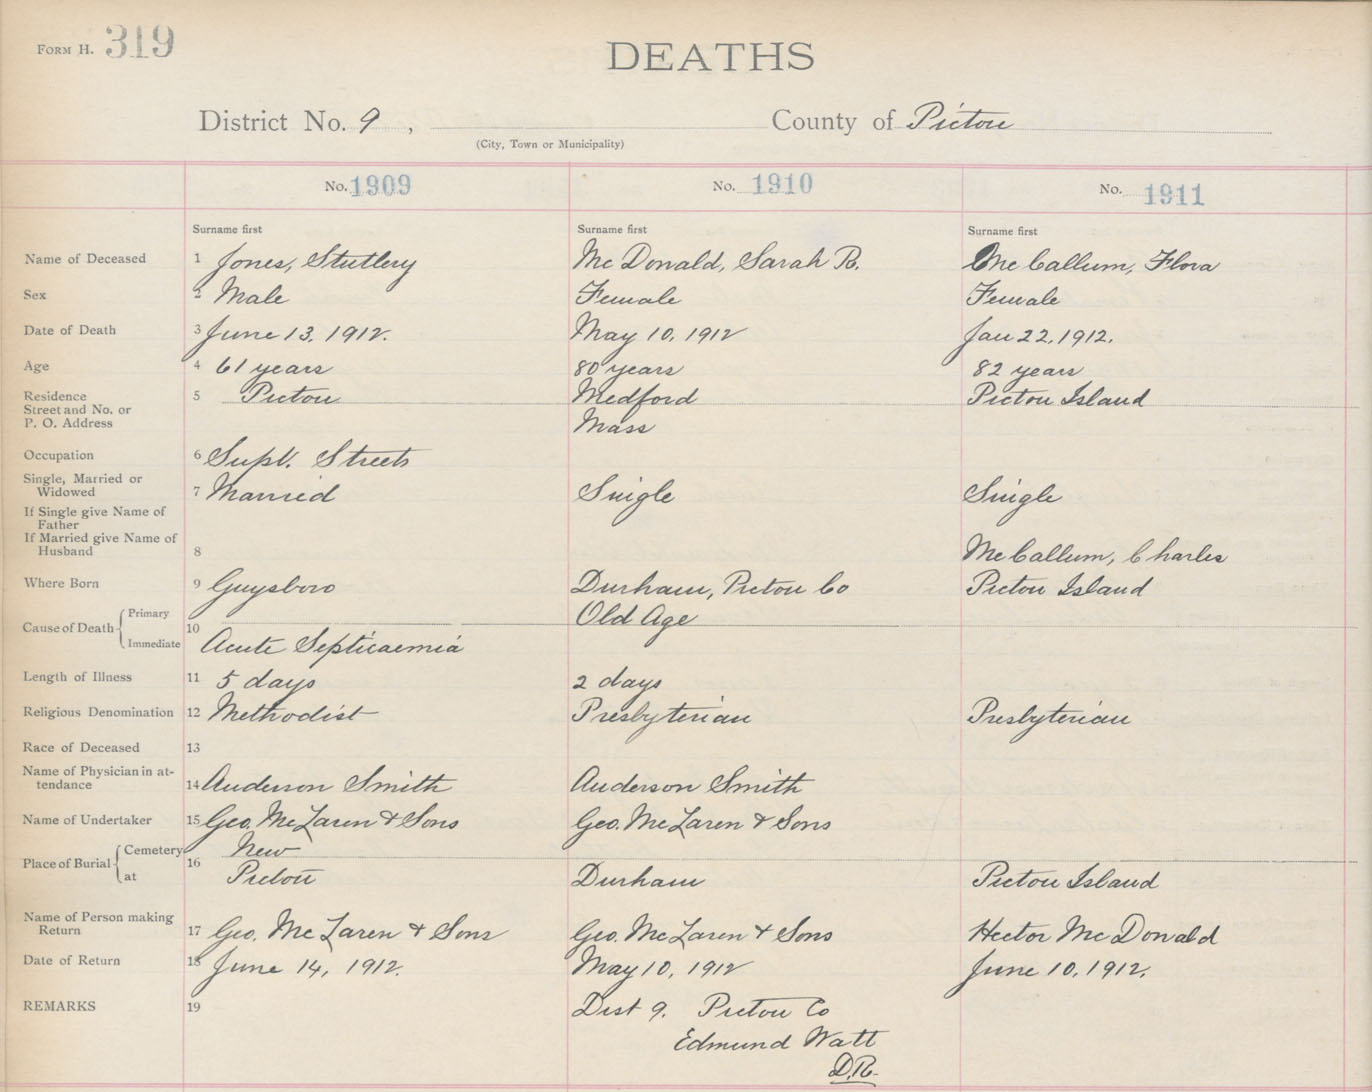 FORM H. 319
DEATHS
District No. 9, County of Pictou
(City, Town or Municipality)
No. 1909 No. 1910 No. 1911
Surname first Surname first Surname first
Name of Deceased 1 Jones, Stutlery McDonald, Sarah R. McCallum, Flora
Sex 2 Male Female Female
Date of Death 3 June 13, 1912. May 10, 1912 Jan 22, 1912.
Age 4 61 years 80 years 82 years
Residence 5 Pictou Medford Pictou Island
Street and No. or
P. O. Address Mass
Occupation 6 Supt. Streets
Single, Married or
Widowed 7 Married Single Single
If Single give Name of
Father
If Married give Name of
Husband 8 McCallum, Charles
Where Born 9 Guysboro Durham, Pictou Co Pictou Island
Cause of Death Primary 10 Old Age
Immediate Acute Septicaemia
Length of Illness 11 5 days 2 days
Religious Denomination 12 Methodist Presbyterian Presbyterian
Race of Deceased 13
Name of Physician in at-
tendance 14 Anderson Smith Anderson Smith
Name of Undertaker 15 Geo. McLaren & Sons Geo. McLaren & Sons
Place of Burial Cemetery 16 New
at Pictou Durham Pictou Island
Name of Person making
Return 17 Geo. McLaren & Sons Geo. McLaren & Sons Hector McDonald
Date of Return 18 June 14, 1912. May 10, 1912 June 10, 1912.
REMARKS 19 Dist 9. Pictou Co
Edmund Watt
D.R.